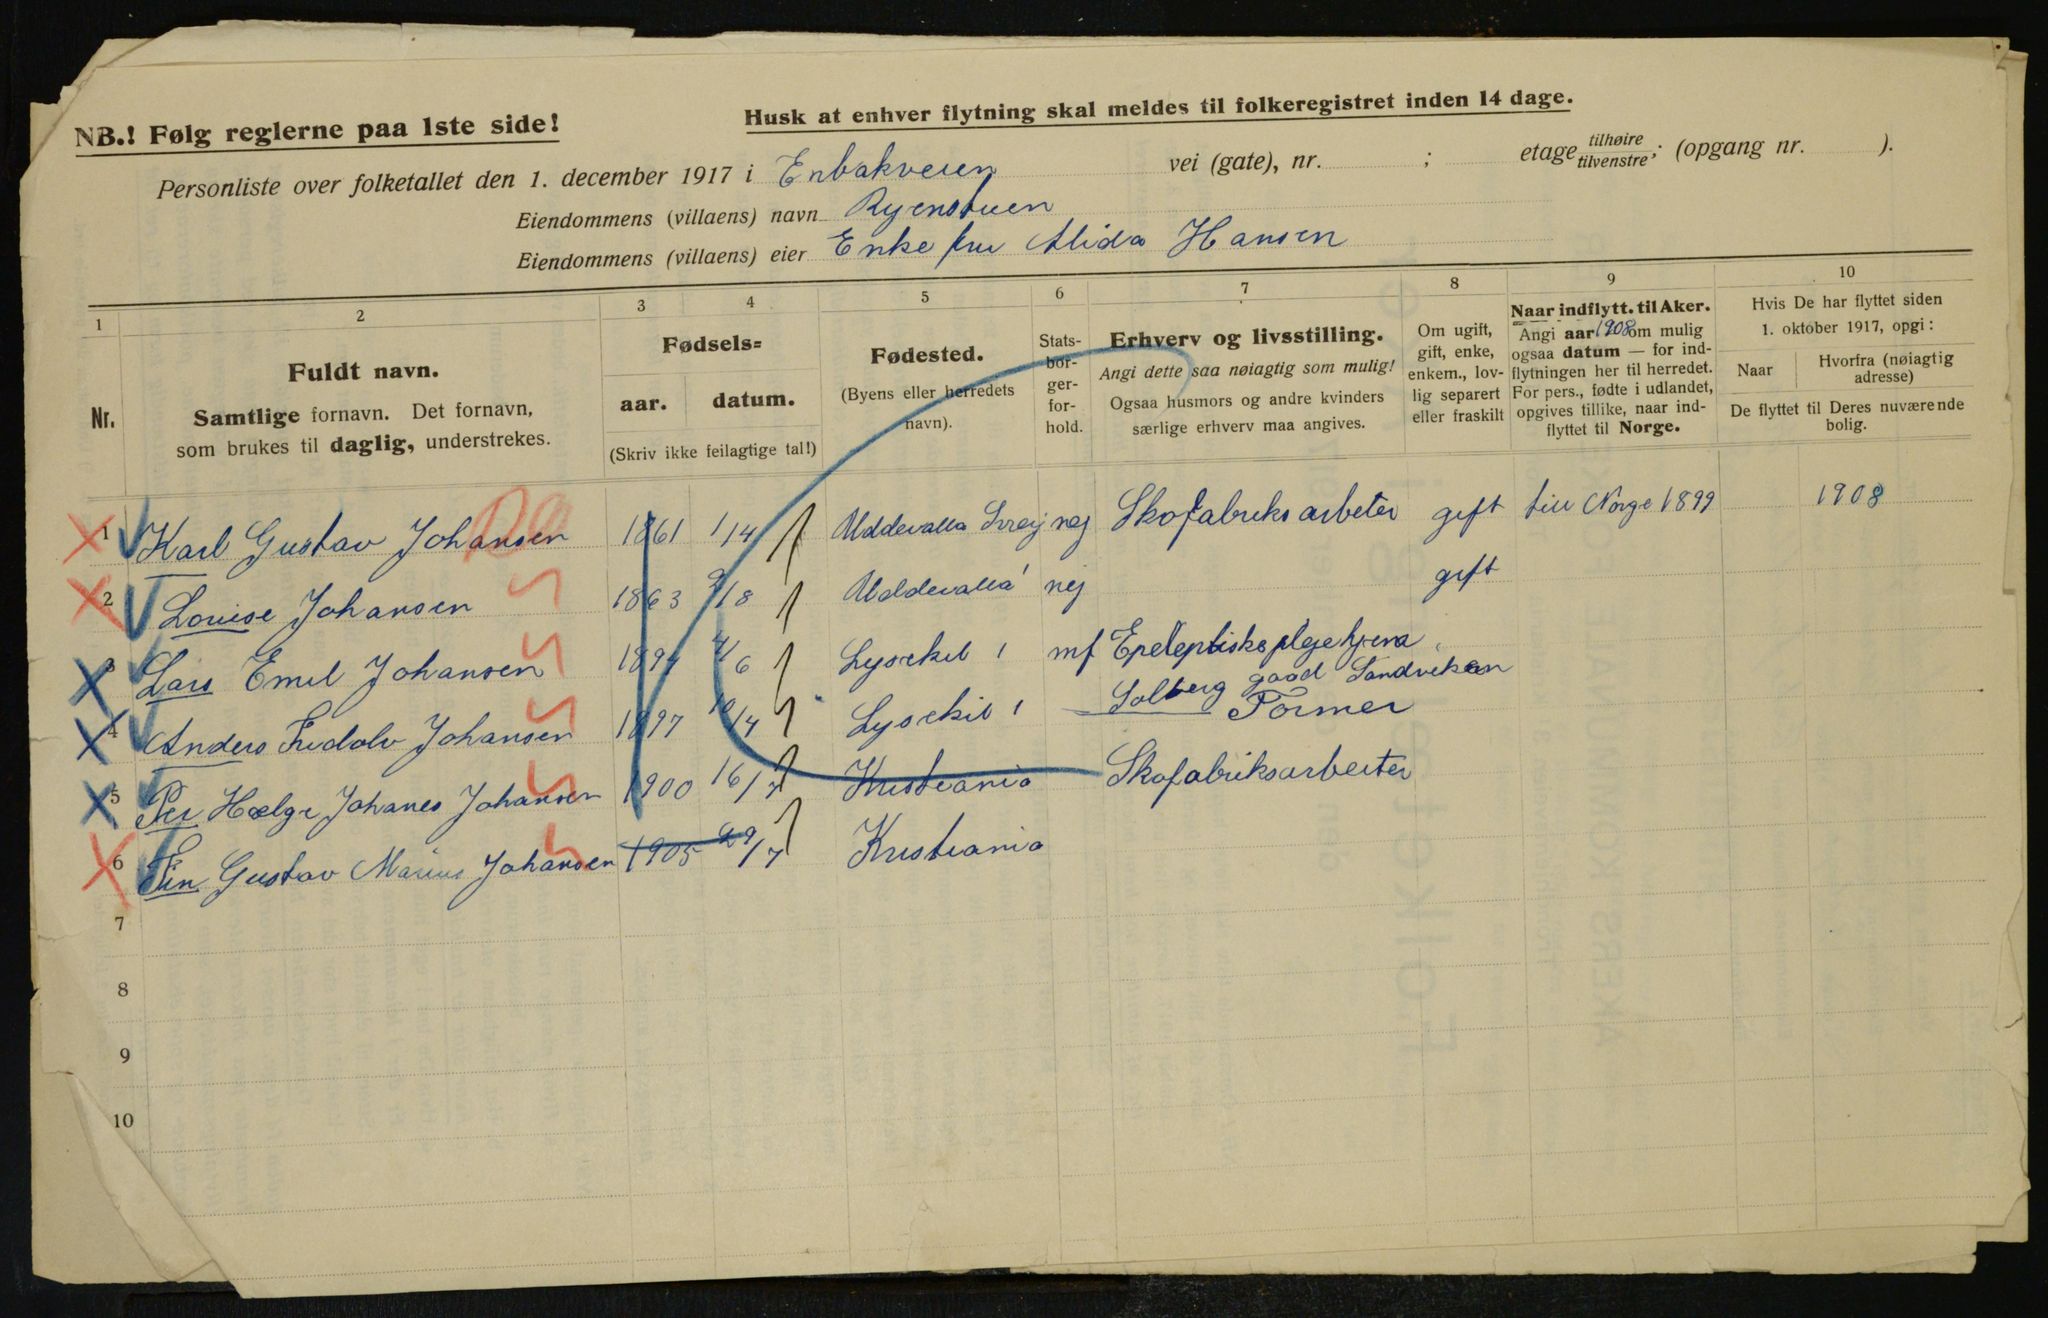 NB.! Følg reglerne paa 1ste side!
Husk at enhver flytning skal meldes til folkeregistret inden 14 dage.
Personliste over folketallet den 1. december 1917 i Enbakveien vei (gate), nr. ; etage tilhøire tilvenstre; (opgang nr. ).
Eiendommens (villaens) navn Ryenstuen
Eiendommens (villaens) eier Enke fru Alida Hansen
1 2 3 4 5 6 7 8 9 10
Nr.
Fuldt navn.
Samtlige fornavn. Det fornavn,
som brukes til daglig, understrekes.
Fødsels=
aar. datum.
(Skriv ikke feilagtige tal!)
Fødested.
(Byens eller herredets
navn).
Stats-
bor-
ger-
for-
hold.
Erhverv og livsstilling.
Angi dette saa nøiagtig som mulig!
Ogsaa husmors og andre kvinders
særlige erhverv maa angives.
Om ugift,
gift, enke,
enkem., lov-
lig separert
eller fraskilt
Naar indflytt. til Aker.
Angi aar 1908 om mulig
ogsaa datum — for ind-
flytningen her til herredet.
For pers., fødte i udlandet,
opgives tillike, naar ind-
flyttet til Norge.
Hvis De har flyttet siden
1. oktober 1917, opgi:
Naar Hvorfra (nøiagtig
adresse)
De flyttet til Deres nuværende
bolig.
1 Karl Gustav Johansen 1861 1/4 Uddevalla nej Skofabriksarbeter gift till Norge 1899 1908
2 Louise Johansen 1863 /8 Uddevalla nej gift
3 Lars Emil Johansen 189 /6 Lysekil mf
4 Anders Fridolv Johansen 1897 10/4 Lysekil Solberg gaad Sandveken
Former
5 Per Hælge Johanes Johansen 1900 16/7 Kristiania Skofabriksarbeiter
6 Fin Gustav Marius Johansen 1905 29/7 Kristiania
7
8
9
10